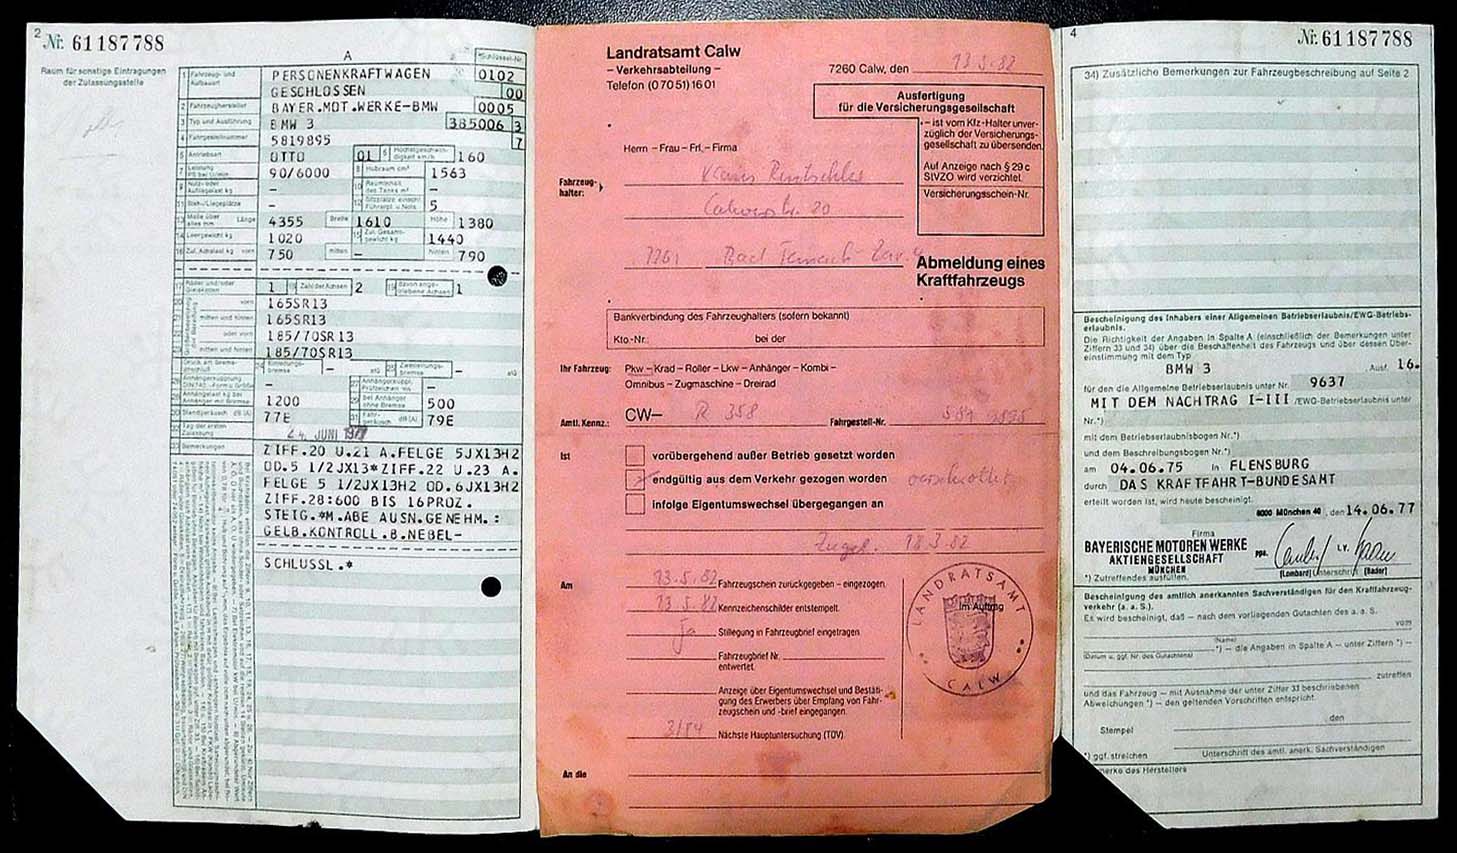 2 Nr. 61187788
Raum für sonstige Eintragungen
der Zulassungsstelle
A
Schlüssel-Nr.
1 Fahrzeug- und Aufbauart PERSONENKRAFTWAGEN 0102
GESCHLOSSEN 00
2 Fahrzeughersteller BAYER.MOT.WERKE-BMW 0005
3 Typ und Ausführung BMW 3 385006 3
4 Fahrgestellnummer 5819895 7
5 Antriebsart OTTO 01 6 Höchstgeschwindigkeit km/h 160
7 Leistung 90/6000 8 Hubraum cm³ 1563
9 Nutz- oder Aufliegelast kg – 10 Rauminhalt des Tanks m³ –
11 Steh-/Liegeplätze – 12 Sitzplätze einschl. Führerpl. u. Nots. 5
13 Maße über alles mm Länge 4355 Breite 1610 Höhe 1380
14 Leergewicht kg 1020 15 Zul. Gesamtgewicht kg 1440
16 Zul. Achslast kg vorn 750 mitten – hinten 790
17 Räder und/oder Gleisketten 1 18 Zahl der Achsen 2 19 davon angetriebene Achsen 1
20 vorn 165SR13
21 mitten und hinten 165SR13
22 oder vorn 185/70SR13
23 mitten und hinten 185/70SR13
– –
– –
1200 bei Anhänger ohne Bremse 500
30 Standgeräusch dB (A) 77E 31 Fahrgeräusch dB(A) 79E
32 Tag der ersten Zulassung 24. JUNI 1977
33 Bemerkungen ZIFF.20 U.21 A.FELGE 5JX13H2
OD.5 1/2JX13*ZIFF.22 U.23 A.
FELGE 5 1/2JX13H2 OD.6JX13H2
ZIFF.28:600 BIS 16PROZ.
STEIG.*M.ABE AUSN.GENEHM.:
GELB.KONTROLL.B.NEBEL-
SCHLUSSL.*
Landratsamt Calw
– Verkehrsabteilung –
Telefon (07051) 1601
7260 Calw, den 13.5.82
Ausfertigung
für die Versicherungsgesellschaft
– ist vom Kfz-Halter unver-
züglich der Versicherungs-
gesellschaft zu übersenden.
Auf Anzeige nach § 29 c
StVZO wird verzichtet.
Versicherungsschein-Nr.
Herrn – Frau – Frl. – Firma
Fahrzeug-
halter:
Klaus Rentschler
Calwerstr. 20
7261 Bad Teinach-Zav. 4
Abmeldung eines
Kraftfahrzeugs
Bankverbindung des Fahrzeughalters (sofern bekannt)
Kto-Nr.: bei der
Ihr Fahrzeug: Pkw – Krad – Roller – Lkw – Anhänger – Kombi –
Omnibus – Zugmaschine – Dreirad
Amtl. Kennz.: CW– R 358 Fahrgestell-Nr. 581 9895
Ist vorübergehend außer Betrieb gesetzt worden
endgültig aus dem Verkehr gezogen worden verschrottet
infolge Eigentumswechsel übergegangen an
Zugel. 18.3.82
Am 13.5.82 Fahrzeugschein zurückgegeben – eingezogen.
13.5.82 Kennzeichenschilder entstempelt.
ja Stillegung in Fahrzeugbrief eingetragen.
Fahrzeugbrief Nr.
entwertet.
Anzeige über Eigentumswechsel und Bestäti-
gung des Erwerbers über Empfang von Fahr-
zeugschein und -brief eingegangen.
3/84 Nächste Hauptuntersuchung (TÜV).
An die
LANDRATSAMT
Im Auftrag
CALW
4 Nr. 61187788
34) Zusätzliche Bemerkungen zur Fahrzeugbeschreibung auf Seite 2
Bescheinigung des Inhabers einer Allgemeinen Betriebserlaubnis/EWG-Betriebs-
erlaubnis.
Die Richtigkeit der Angaben in Spalte A (einschließlich der Bemerkungen unter
Ziffern 33 und 34) über die Beschaffenheit des Fahrzeugs und über dessen Über-
einstimmung mit dem Typ
BMW 3 Ausf. 16.
für den die Allgemeine Betriebserlaubnis unter Nr. 9637
MIT DEM NACHTRAG I-III /EWG-Betriebserlaubnis unter
Nr.*)
mit dem Betriebserlaubnisbogen Nr.*)
und dem Beschreibungsbogen Nr.*)
am 04.06.75 in FLENSBURG
durch DAS KRAFTFAHRT-BUNDESAMT
erteilt worden ist, wird heute bescheinigt.
8000 München 40, den 14.06.77
Firma
BAYERISCHE MOTOREN WERKE
AKTIENGESELLSCHAFT
MÜNCHEN
ppa. i.V.
(Lombard) Unterschrift (Bader)
*) Zutreffendes ausfüllen.
Bescheinigung des amtlich anerkannten Sachverständigen für den Kraftfahrzeug-
verkehr (a. a. S.).
Es wird bescheinigt, daß – nach dem vorliegenden Gutachten des a. a. S.
vom
(Name)
*) – die Angaben in Spalte A – unter Ziffern *) –
(Datum u. ggf. Nr. des Gutachtens)
zutreffen
und das Fahrzeug – mit Ausnahme der unter Ziffer 33 beschriebenen
Abweichungen *) – den geltenden Vorschriften entspricht.
den
Stempel
*) ggf. streichen Unterschrift des amtl. anerk. Sachverständigen
Vermerke des Herstellers